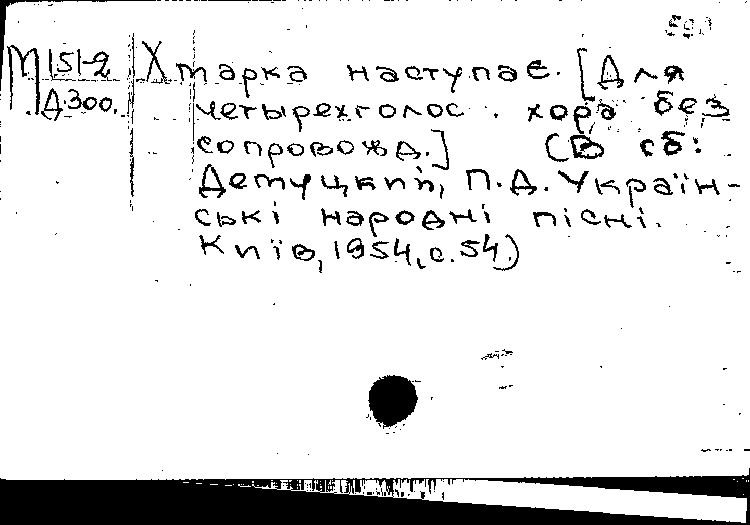 М 151-2 Хтарка наступає. [Для
Д.300. четырехголос. хора без
сопровожд.] (В сб:
Демуцкий, П.Д. Україн-
ські народні пісні.
Київ, 1954, с.54)